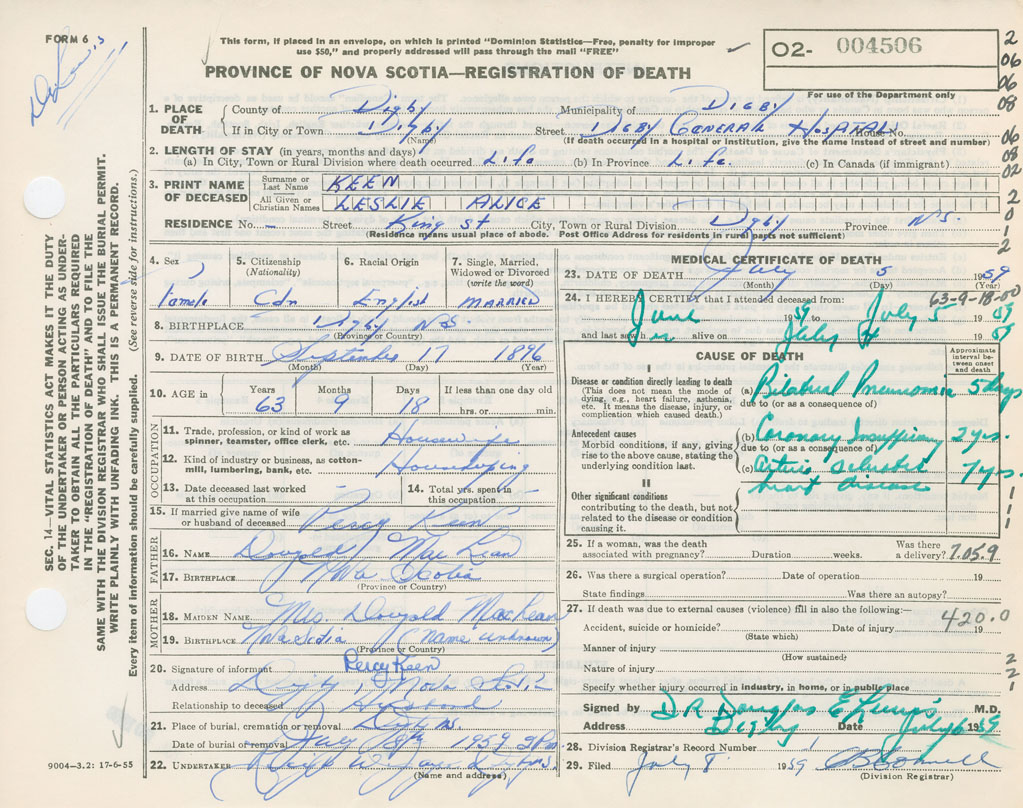 FORM 6
This form, if placed in an envelope, on which is printed "Dominion Statistics—Free, penalty for improper
use $50," and properly addressed will pass through the mail "FREE"
PROVINCE OF NOVA SCOTIA—REGISTRATION OF DEATH
O2- 004506
For use of the Department only
2
06
06
08
06
08
02
2
0
1
2
1. PLACE OF DEATH County of Digby Municipality of DIGBY
If in City or Town Digby Street DIGBY GENERAL HOSPITAL House No.
(Name) (If death occurred in a hospital or institution, give the name instead of street and number)
2. LENGTH OF STAY (in years, months and days)
(a) In City, Town or Rural Division where death occurred Life (b) In Province Life (c) In Canada (if immigrant)
3. PRINT NAME OF DECEASED Surname or Last Name KEEN
All Given or Christian Names LESLIE ALICE
RESIDENCE No. — Street King St City, Town or Rural Division Digby Province N.S.
(Residence means usual place of abode. Post Office Address for residents in rural parts not sufficient)
4. Sex female
5. Citizenship (Nationality) Cdn
6. Racial Origin English
7. Single, Married, Widowed or Divorced (write the word) MARRIED
8. BIRTHPLACE Digby N.S.
(Province or Country)
9. DATE OF BIRTH September 17 1896
(Month) (Day) (Year)
10. AGE in Years 63 Months 9 Days 18 If less than one day old hrs. or min.
OCCUPATION
11. Trade, profession, or kind of work as spinner, teamster, office clerk, etc. Housewife
12. Kind of industry or business, as cotton-mill, lumbering, bank, etc. Housekeeping
13. Date deceased last worked at this occupation
14. Total yrs. spent in this occupation
15. If married give name of wife or husband of deceased Percy Keen
FATHER
16. NAME Dougold MacLean
17. BIRTHPLACE Nova Scotia
(Province or Country)
MOTHER
18. MAIDEN NAME Mrs. Dougold MacLean
19. BIRTHPLACE Nova Scotia (name unknown)
(Province or Country)
20. Signature of informant Percy Keen
Address Digby, Nova Scotia
Relationship to deceased Husband
21. Place of burial, cremation or removal Digby N.S.
Date of burial or removal July 8th 1959 2 Pm
22. UNDERTAKER
(Name and address)
MEDICAL CERTIFICATE OF DEATH
23. DATE OF DEATH July 5 1959
(Month) (Day) (Year)
63-9-18-00
24. I HEREBY CERTIFY that I attended deceased from:
June 1959 to July 5 1959
and last saw h er alive on July 4 1959
CAUSE OF DEATH
Approximate interval between onset and death
I
Disease or condition directly leading to death
(This does not mean the mode of dying, e.g., heart failure, asthenia, etc. It means the disease, injury, or complication which caused death.)
(a) Bilateral Pneumonia 5 days
due to (or as a consequence of)
Antecedent causes
Morbid conditions, if any, giving rise to the above cause, stating the underlying condition last.
(b) Coronary Insufficiency 2 yrs.
due to (or as a consequence of)
(c) Arterio sclerotic 7 yrs.
heart disease
II
Other significant conditions
contributing to the death, but not related to the disease or condition causing it.
25. If a woman, was the death associated with pregnancy? Duration weeks. Was there a delivery? 7.05.9
26. Was there a surgical operation? Date of operation 19
State findings Was there an autopsy?
27. If death was due to external causes (violence) fill in also the following:—
420.0
Accident, suicide or homicide? Date of injury 19
(State which)
Manner of injury
(How sustained)
Nature of injury
Specify whether injury occurred in industry, in home, or in public place
Signed by DR Douglas E M.D.
Address Digby Date July 6 1959
28. Division Registrar's Record Number
29. Filed July 8 1959
(Division Registrar)
SEC. 14—VITAL STATISTICS ACT MAKES IT THE DUTY
OF THE UNDERTAKER OR PERSON ACTING AS UNDER-
TAKER TO OBTAIN ALL THE PARTICULARS REQUIRED
IN THE "REGISTRATION OF DEATH" AND TO FILE THE
SAME WITH THE DIVISION REGISTRAR WHO SHALL ISSUE THE BURIAL PERMIT.
WRITE PLAINLY WITH UNFADING INK. THIS IS A PERMANENT RECORD.
Every item of information should be carefully supplied. (See reverse side for instructions.)
9004-3.2: 17-6-55